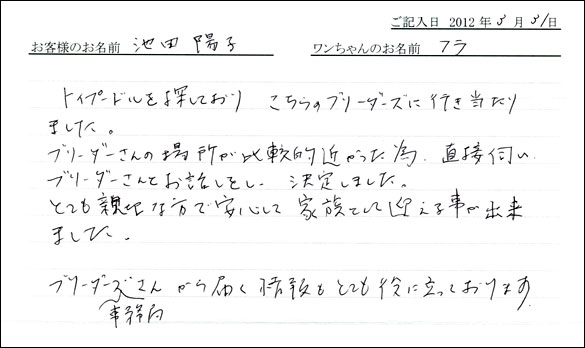 ご記入日 2012年5月31日
お客様のお名前 池田 陽子 ワンちゃんのお名前 フラ
トイプードルを探しており こちらのブリーダーズに行き当たり
ました。
ブリーダーさんの場所が比較的近かった為、直接伺い
ブリーダーさんとお話しをし、決定しました。
とても親切な方で安心して家族として迎える事が出来
ました。
ブリーダーズさんから届く情報もとても役に立っております
事務局